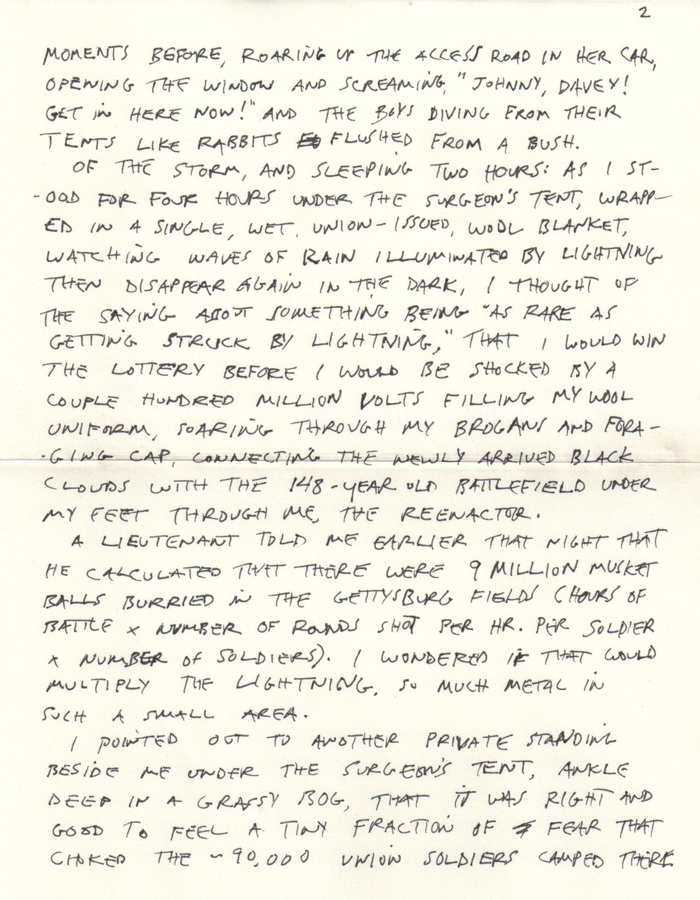 2
MOMENTS BEFORE, ROARING UP THE ACCESS ROAD IN HER CAR,
OPENING THE WINDOW AND SCREAMING, "JOHNNY, DAVEY!
GET IN HERE NOW!" AND THE BOYS DIVING FROM THEIR
TENTS LIKE RABBITS FLUSHED FROM A BUSH.
OF THE STORM, AND SLEEPING TWO HOURS: AS I ST-
-OOD FOR FOUR HOURS UNDER THE SURGEON'S TENT, WRAPP-
ED IN A SINGLE, WET, UNION-ISSUED, WOOL BLANKET,
WATCHING WAVES OF RAIN ILLUMINATED BY LIGHTNING
THEN DISAPPEAR AGAIN IN THE DARK, I THOUGHT OF
THE SAYING ABOUT SOMETHING BEING "AS RARE AS
GETTING STRUCK BY LIGHTNING," THAT I WOULD WIN
THE LOTTERY BEFORE I WOULD BE SHOCKED BY A
COUPLE HUNDRED MILLION VOLTS FILLING MY WOOL
UNIFORM, SOARING THROUGH MY BROGANS AND FORA-
-GING CAP, CONNECTING THE NEWLY ARRIVED BLACK
CLOUDS WITH THE 148-YEAR OLD BATTLEFIELD UNDER
MY FEET THROUGH ME, THE REENACTOR.
A LIEUTENANT TOLD ME EARLIER THAT NIGHT THAT
HE CALCULATED THAT THERE WERE 9 MILLION MUSKET
BALLS BURRIED IN THE GETTYSBURG FIELDS (HOURS OF
BATTLE x NUMBER OF ROUNDS SHOT PER HR. PER SOLDIER
x NUMBER OF SOLDIERS). I WONDERED IF THAT WOULD
MULTIPLY THE LIGHTNING, SO MUCH METAL IN
SUCH A SMALL AREA.
I POINTED OUT TO ANOTHER PRIVATE STANDING
BESIDE ME UNDER THE SURGEON'S TENT, ANKLE
DEEP IN A GRASSY BOG, THAT IT WAS RIGHT AND
GOOD TO FEEL A TINY FRACTION OF FEAR THAT
CHOKED THE ~90,000 UNION SOLDIERS CAMPED THERE